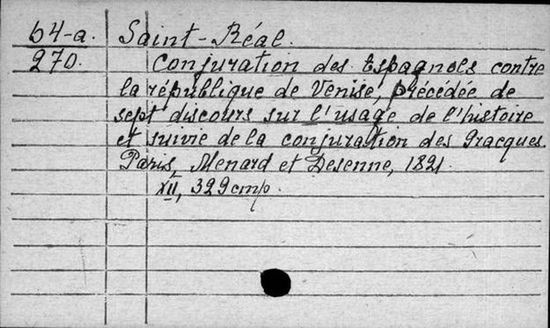 64-a. Saint-Réal.
270. Conjuration des Espagnols contre
la république de Venise, précédée de
sept discours sur l'usage de l'histoire
et suivie de la conjuration des Gracques.
Paris, Menard et Desenne, 1821.
XII, 329 стр.